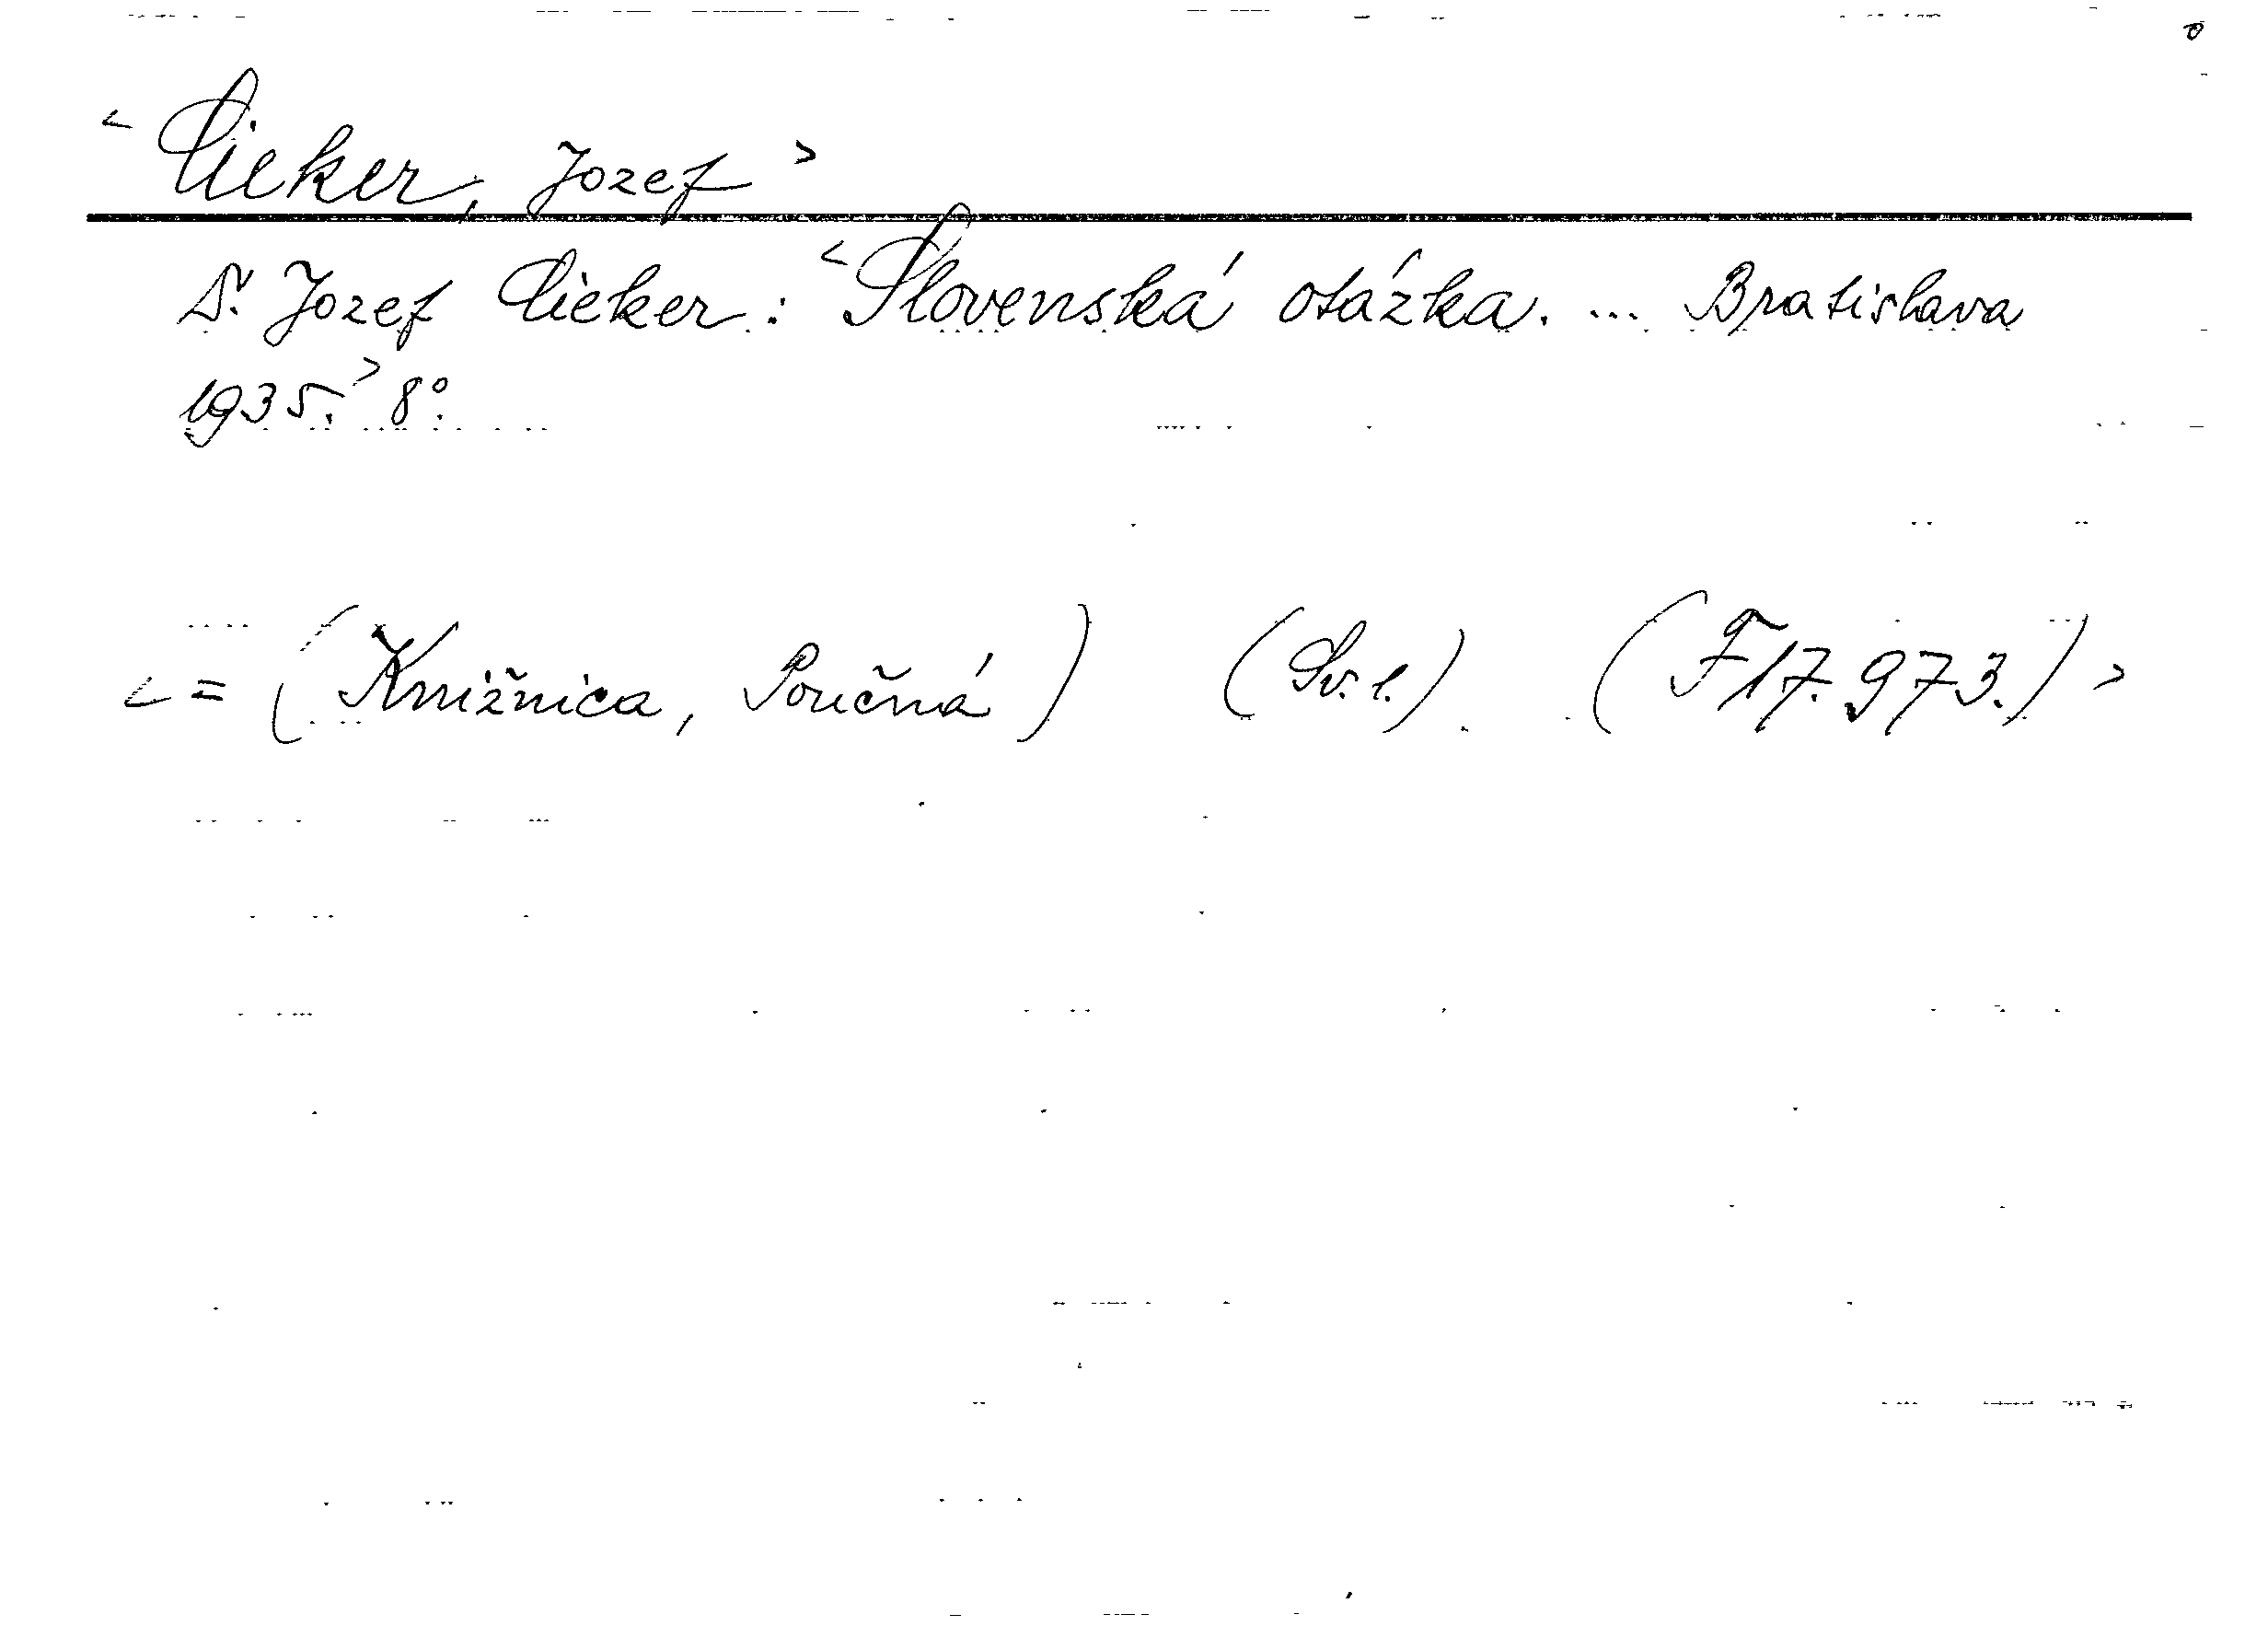 < Cieker, Jozef >
Dr. Jozef Cieker: < Slovenská otázka. ... Bratislava
1935. > 8°.
< = (Knižnica, Poučná) (Sv. 1.) (F 17.973.) >